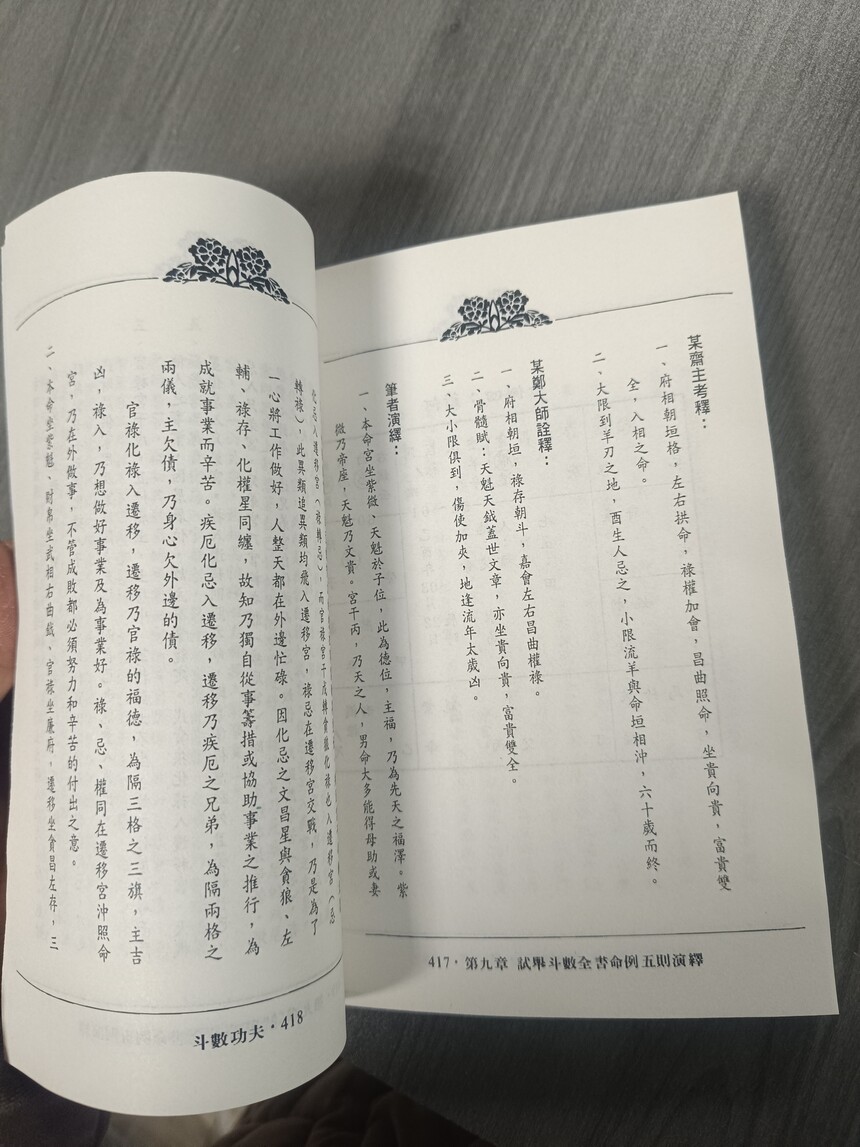 某齋主考釋：
一、府相朝垣格，左右拱命，祿權加會，昌曲照命，坐貴向貴，富貴雙
全，入相之命。
二、大限到羊刃之地，酉生人忌之，小限流羊與命垣相沖，六十歲而終。
某鄭大師詮釋：
一、府相朝垣，祿存朝斗，嘉會左右昌曲權祿。
二、骨髓賦：天魁天鉞蓋世文章，亦坐貴向貴，富貴雙全。
三、大小限俱到，傷使加夾，地逢流年太歲凶。
筆者演繹：
一、本命宮坐紫微、天魁於子位，此為德位，主福，乃為先天之福澤。紫
微乃帝座，天魁乃文貴。宮干丙，乃天之人，男命大多能得母助或妻
417·第九章 試舉斗數全書命例五則演繹
化忌入遷移宮（祿轉忌），而官祿宮干戊轉貪狼化祿也入遷移宮（忌
轉祿），此異類追異類均飛入遷移宮，祿忌在遷移宮交戰，乃是為了
一心將工作做好，人整天都在外邊忙碌。因化忌之文昌星與貪狼、左
輔、祿存、化權星同纏，故知乃獨自從事籌措或協助事業之推行，為
成就事業而辛苦。疾厄化忌入遷移，遷移乃疾厄之兄弟，為隔兩格之
兩儀，主欠債，乃身心欠外邊的債。
官祿化祿入遷移，遷移乃官祿的福德，為隔三格之三旗，主吉
凶，祿入，乃想做好事業及為事業好。祿、忌、權同在遷移宮沖照命
宮，乃在外做事，不管成敗都必須努力和辛苦的付出之意。
二、本命坐紫魁、財帛坐武相右曲鉞、官祿坐廉府，遷移坐貪昌左存，三
斗數功夫·418